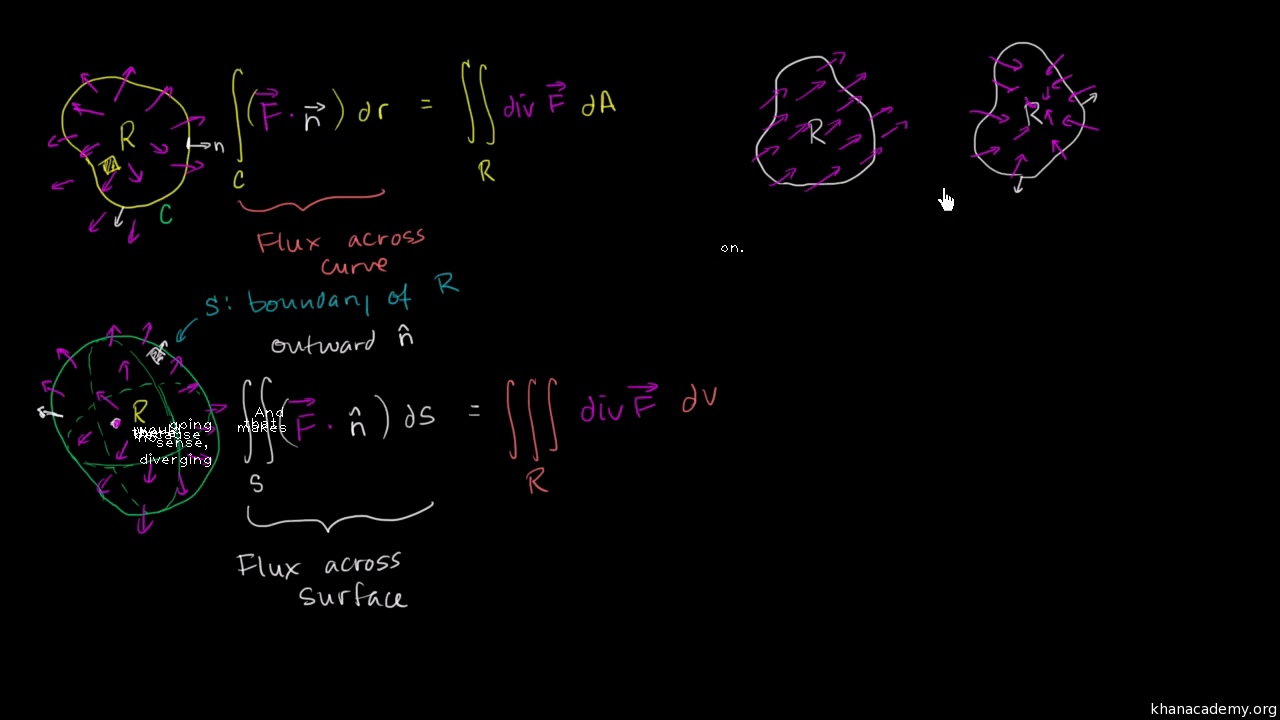 R
n
C
∫_C (F⃗ · n⃗) dr = ∬_R div F⃗ dA
Flux across
curve
R
R
on.
S: boundary of R
outward n̂
R
going
because
sense,
diverging
And
that
makes
∬_S (F⃗ · n̂) dS = ∭_R div F⃗ dV
Flux across
surface
khanacademy.org